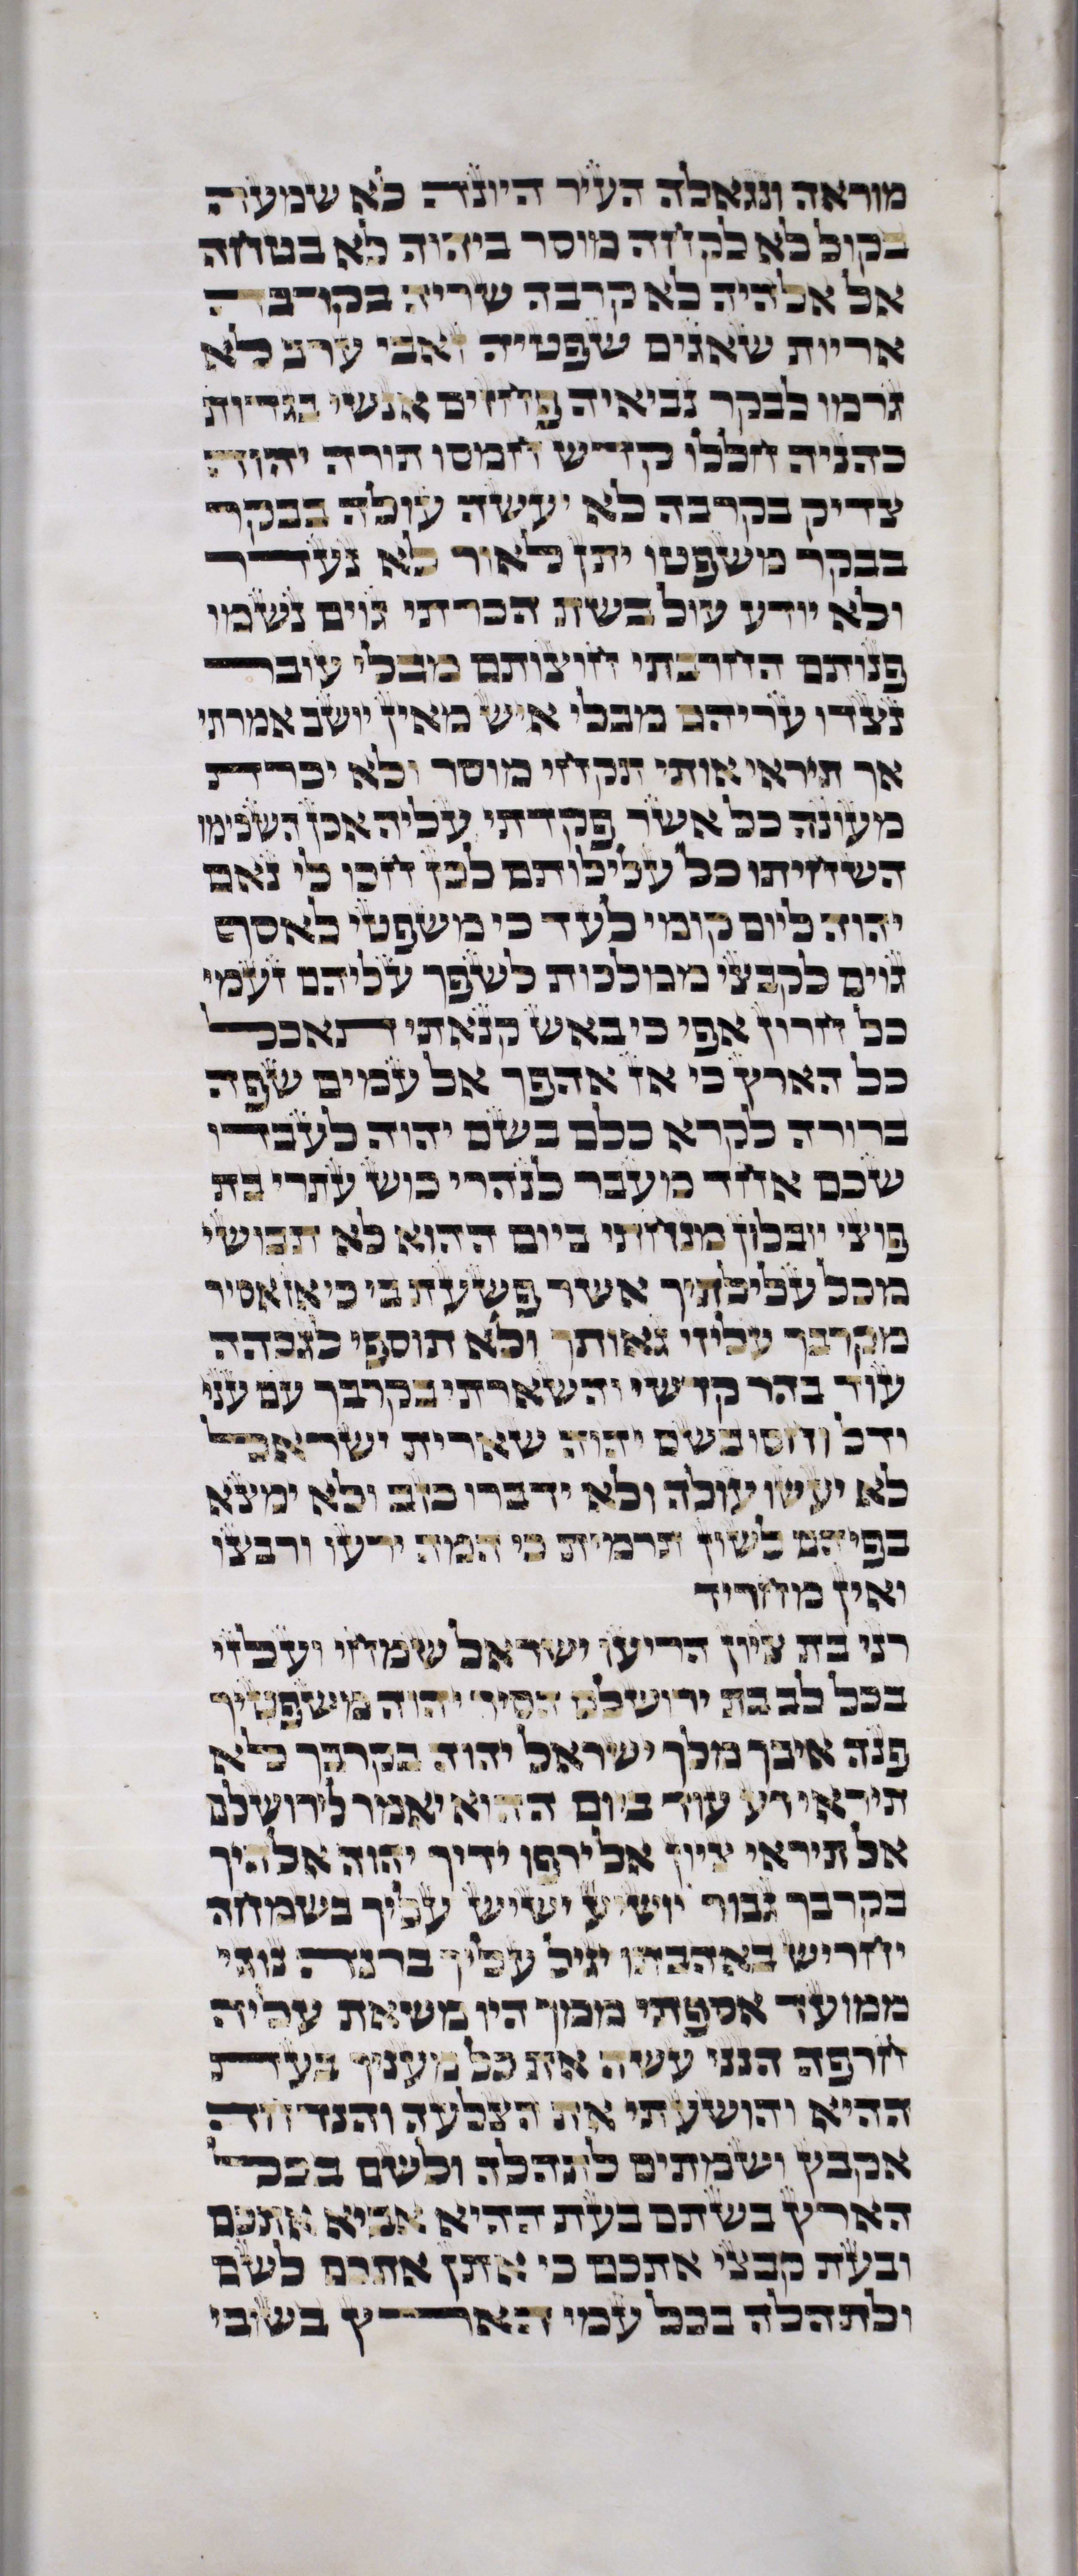 מוראה ונגאלה העיר היונה לא שמעה
בקול לא לקחה מוסר ביהוה לא בטחה
אל אלהיה לא קרבה שריה בקרבה
אריות שאגים שפטיה זאבי ערב לא
גרמו לבקר נביאיה פחזים אנשי בגדות
כהניה חללו קדש חמסו תורה יהוה
צדיק בקרבה לא יעשה עולה בבקר
בבקר משפטו יתן לאור לא נעדר
ולא יודע עול בשת הכרתי גוים נשמו
פנותם החרבתי חוצותם מבלי עובר
נצדו עריהם מבלי איש מאין יושב אמרתי
אך תיראי אותי תקחי מוסר ולא יכרת
מעונה כל אשר פקדתי עליה אכן השכימו
השחיתו כל עלילותם לכן חכו לי נאם
יהוה ליום קומי לעד כי משפטי לאסף
גוים לקבצי ממלכות לשפך עליהם זעמי
כל חרון אפי כי באש קנאתי תאכל
כל הארץ כי אז אהפך אל עמים שפה
ברורה לקרא כלם בשם יהוה לעבדו
שכם אחד מעבר לנהרי כוש עתרי בת
פוצי יובלון מנחתי ביום ההוא לא תבושי
מכל עלילתיך אשר פשעת בי כי אז אסיר
מקרבך עליזי גאותך ולא תוספי לגבהה
עוד בהר קדשי והשארתי בקרבך עם עני
ודל וחסו בשם יהוה שארית ישראל
לא יעשו עולה ולא ידברו כזב ולא ימצא
בפיהם לשון תרמית כי המה ירעו ורבצו
ואין מחריד
רני בת ציון הריעו ישראל שמחי ועלזי
בכל לב בת ירושלם הסיר יהוה משפטיך
פנה איבך מלך ישראל יהוה בקרבך לא
תיראי רע עוד ביום ההוא יאמר לירושלם
אל תיראי ציון אל ירפו ידיך יהוה אלהיך
בקרבך גבור יושיע ישיש עליך בשמחה
יחריש באהבתו יגיל עליך ברנה נוגי
ממועד אספתי ממך היו משאת עליה
חרפה הנני עשה את כל מעניך בעת
ההיא והושעתי את הצלעה והנדחה
אקבץ ושמתים לתהלה ולשם בכל
הארץ בשתם בעת ההיא אביא אתכם
ובעת קבצי אתכם כי אתן אתכם לשם
ולתהלה בכל עמי הארץ בשובי